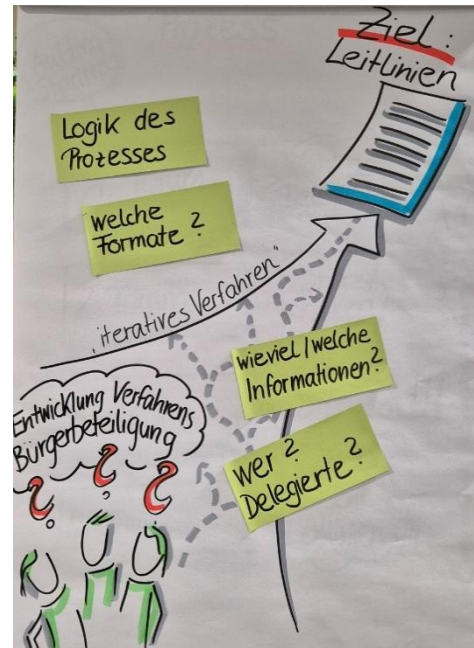 Ziel:
Leitlinien
Logik des
Prozesses
welche
Formate?
„iteratives Verfahren"
wieviel/welche
Informationen?
wer?
Delegierte?
Entwicklung Verfahrens
Bürgerbeteiligung
? ? ?